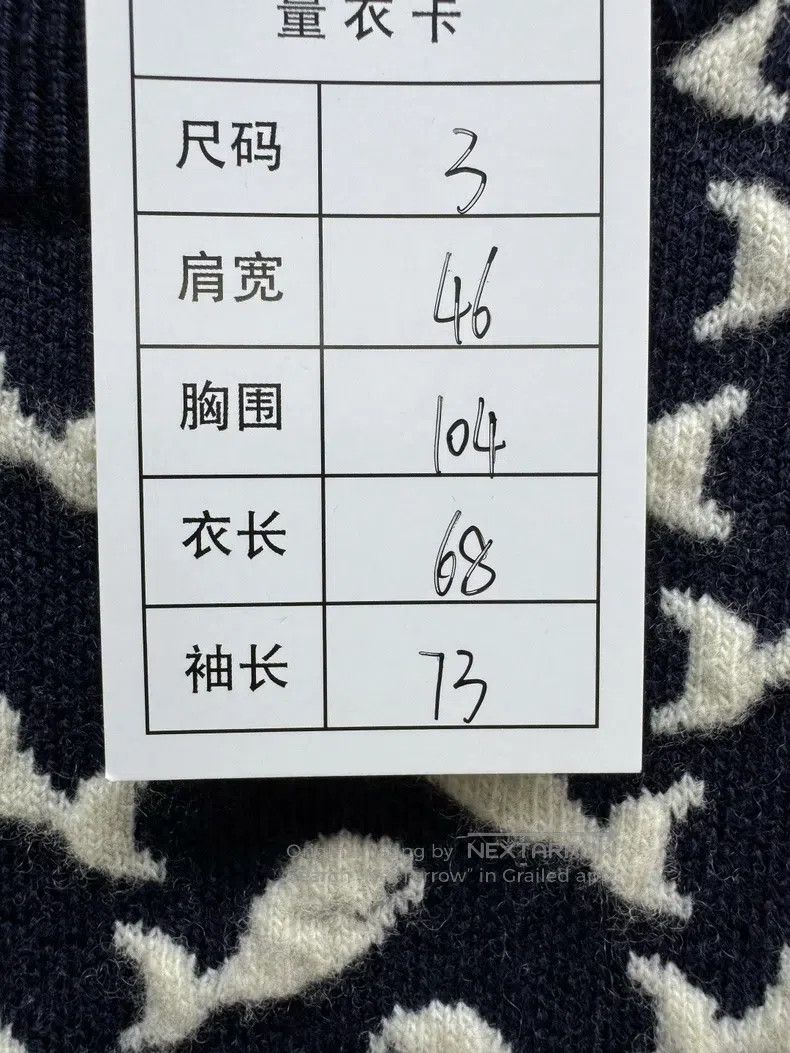 量衣卡
尺码 3
肩宽 46
胸围 104
衣长 68
袖长 73
by NEXTAR
rrow" in Grailed